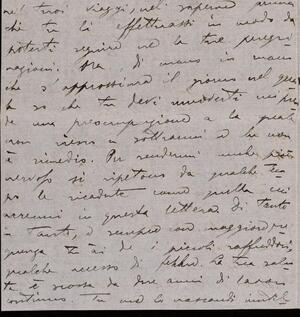 nei tuoi viaggi, nel sapere prima
che tu li effettuassi in modo da
poterti seguire ne le tue peregri
nazioni. Ma di mano in mano
che s'approssima il giorno nel quale
so che tu devi muoverti mi prende
una preoccupazione a la quale
non riesco a sottrarmi e la non
è rimedio. Per rendermi anche più
nervoso si ripetono da qualche tem
po le ricadute come quella cui
accenni in questa lettera di tanto
in tanto, e sempre con maggiore
hai de i piccoli raffreddori,
qualche accesso di febbre. La tua salu
te è scossa da due anni di lavoro
continuo. Tu me lo nascondi